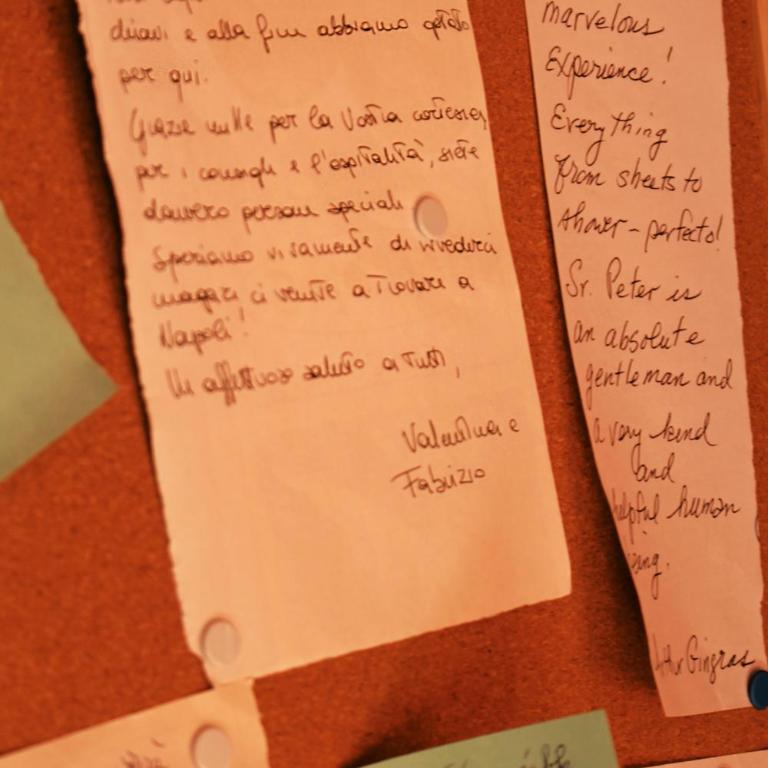 chiavi e alla fine abbiamo optato
per qui.
Grazie mille per la Vostra cortesia,
per i consigli e l'ospitalità, siete
davvero persone speciali
Speriamo vivamente di rivederci
magari ci venite a trovare a
Napoli!
Un affettuoso saluto a tutti,
Valentina e
Fabrizio
marvelous
Experience!
Everything
from sheets to
shower - perfecto!
Sr. Peter is
an absolute
gentleman and
a very kind
and
helpful human
Gingras